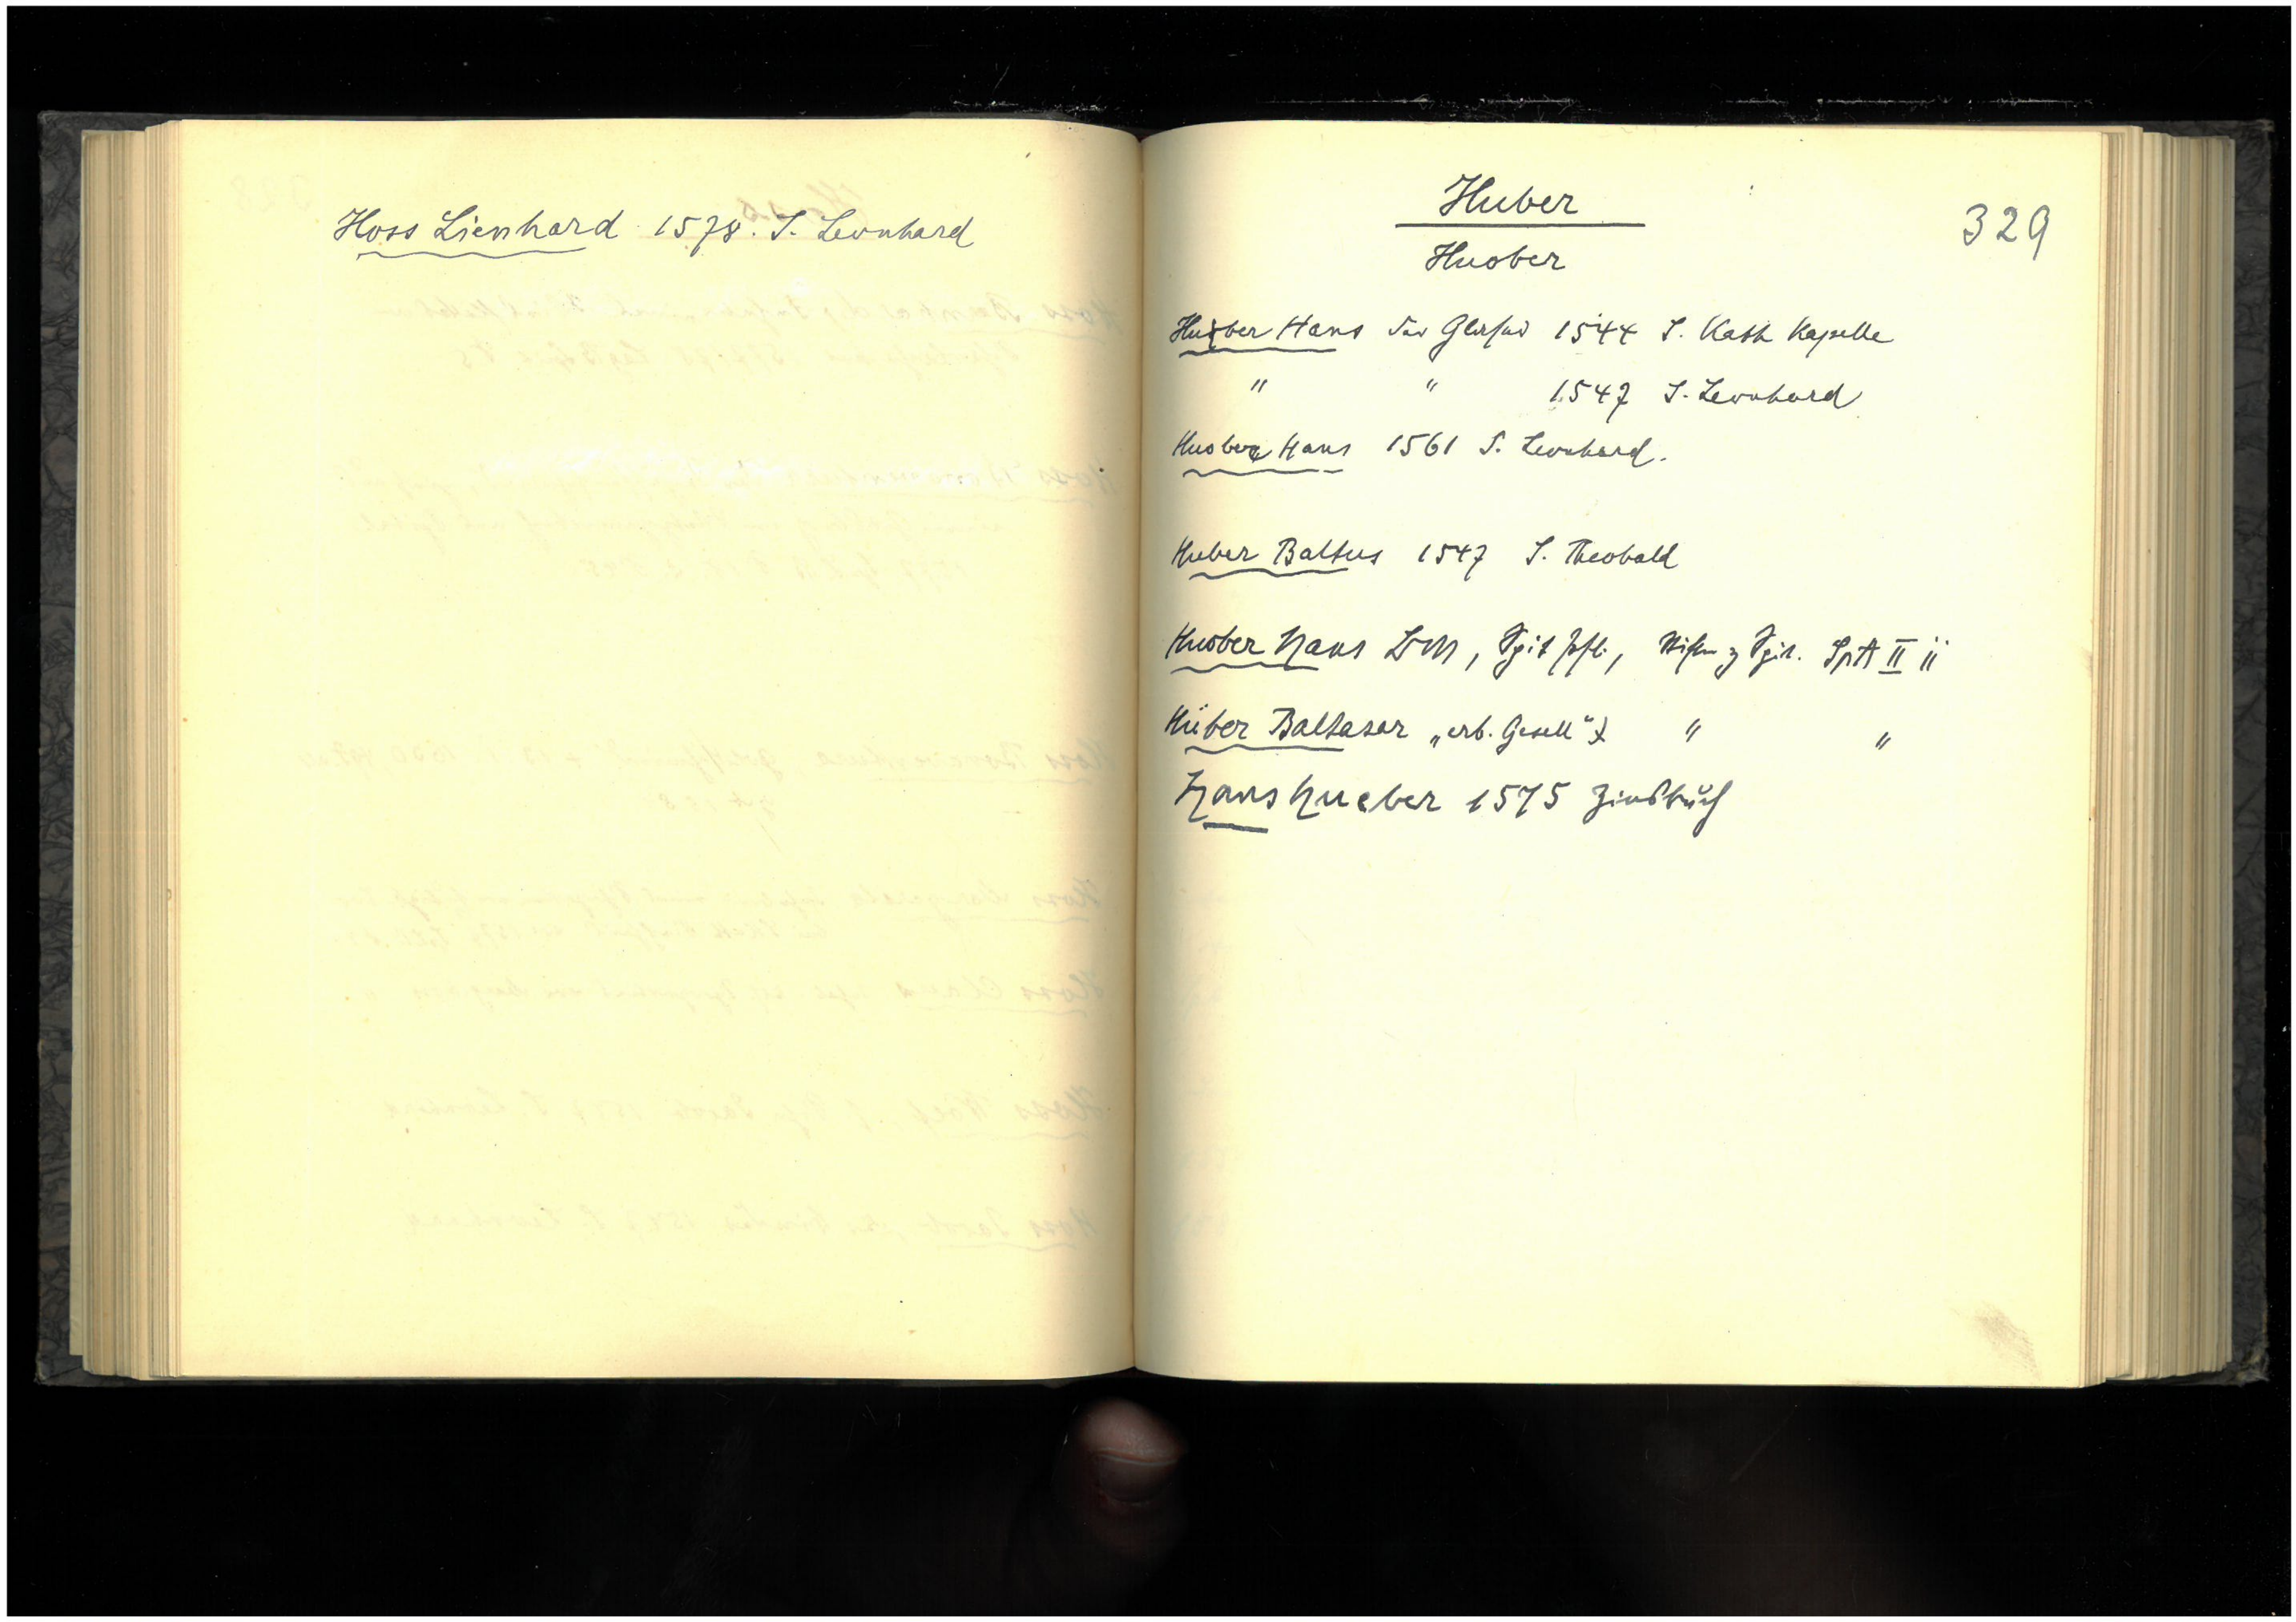 Hoss Lienhard 1578. S. Leonhard
Huber
329
Huober
Huober Hans der Glaser 1544 S. Kath Kapelle
" " 1547 S. Leonhard
Huober Hans 1561 S. Leonhard.
Huber Baltus 1547 S. Theobald
Huober Hans Spit z Spit. SptA II ii
Hüber Baltasar „erb. Gesell" " "
Hans Hueber 1575 Zinsbuch